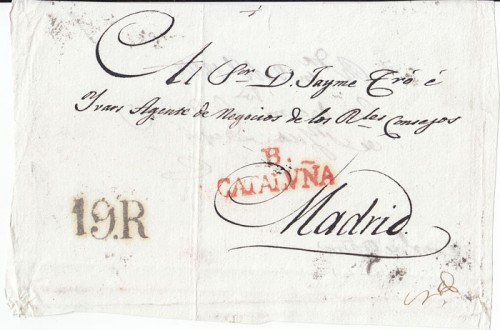 Al Sr. D. Jayme Tró é
Yvars Agente de Negocios de los Rles Consejos
B.
CATALVÑA
19.R
Madrid.